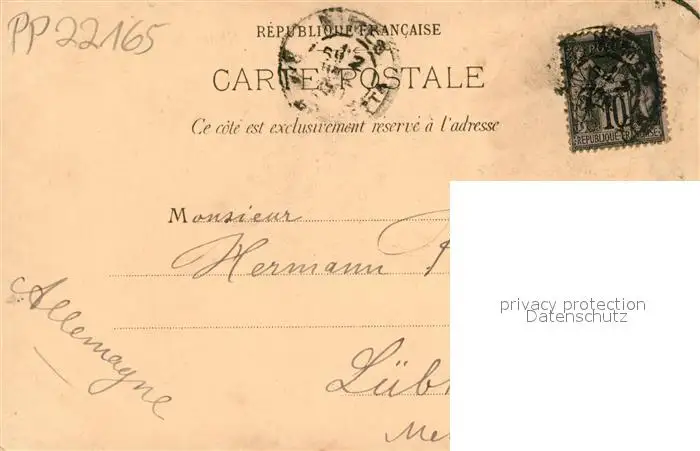 PP22165
RÉPUBLIQUE FRANÇAISE
CARTE POSTALE
Ce côté est exclusivement reservé à l'adresse
POSTES
10
RÉPUBLIQUE FRANÇAISE
Monsieur
Hermann
Allemagne
privacy protection
Datenschutz